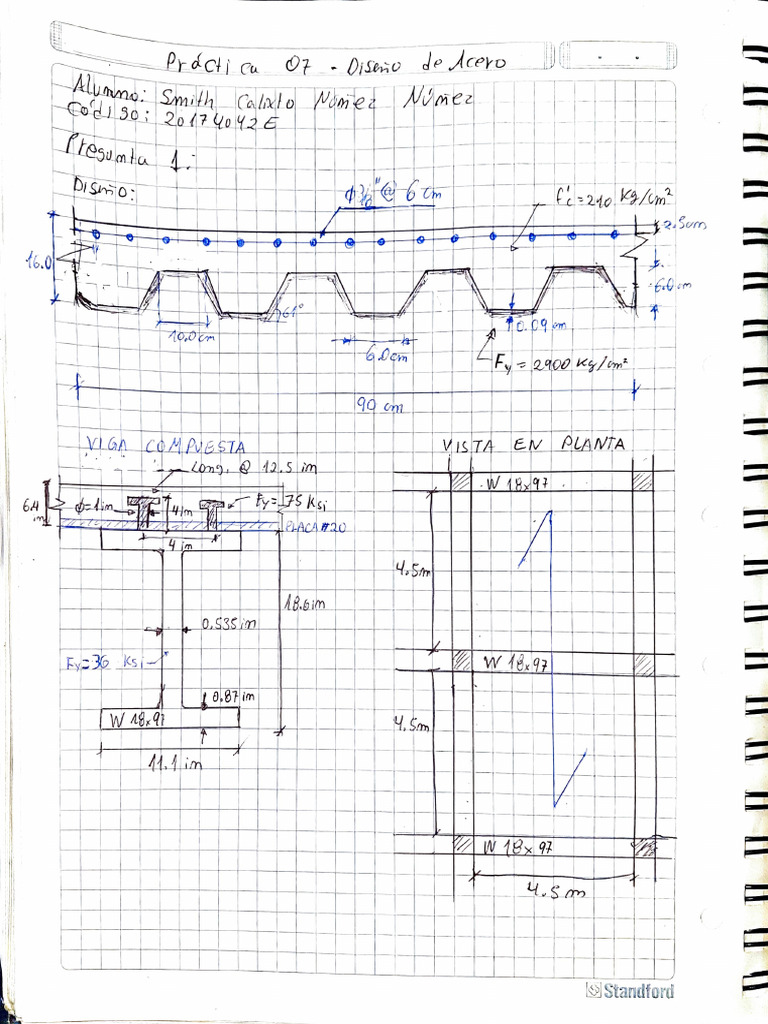 Práctica 07 - Diseño de Acero
Alumno: Smith Calixto Núñez Núñez
Código: 20174042E
Pregunta 1:
Diseño:
ϕ 3/8" @ 6 cm
f'c = 210 Kg/cm²
2.5cm
16.0
6.0 cm
61°
10.0cm
6.0cm
0.09 cm
Fy = 2900 Kg/cm²
90 cm
VIGA COMPUESTA
VISTA EN PLANTA
Long. @ 12.5 in
W 18x97
6.4 in
ϕ=1in
4in
Fy = 75 Ksi
PLACA #20
4 in
4.5m
18.6in
0.535in
Fy=36 Ksi
W 18x97
0.87in
W 18x97
4.5m
11.1 in
W 18x97
4.5m
Standford